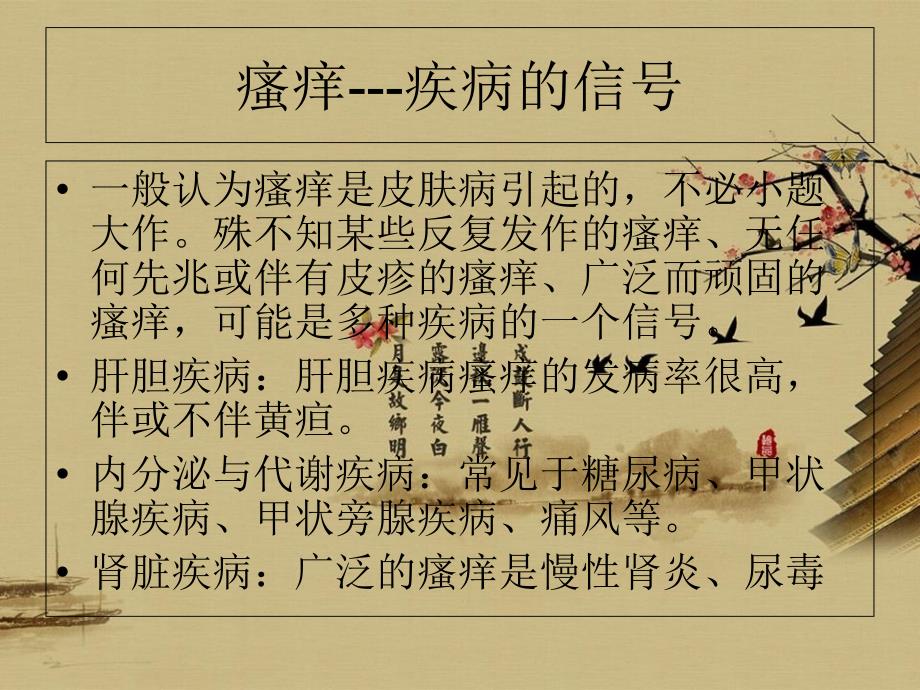 瘙痒---疾病的信号
• 一般认为瘙痒是皮肤病引起的，不必小题
大作。殊不知某些反复发作的瘙痒、无任
何先兆或伴有皮疹的瘙痒、广泛而顽固的
瘙痒，可能是多种疾病的一个信号。
• 肝胆疾病：肝胆疾病瘙痒的发病率很高，
伴或不伴黄疸。
• 内分泌与代谢疾病：常见于糖尿病、甲状
腺疾病、甲状旁腺疾病、痛风等。
• 肾脏疾病：广泛的瘙痒是慢性肾炎、尿毒
戍鼓斷人行
邊秋一雁聲
露從今夜白
月是故鄉明